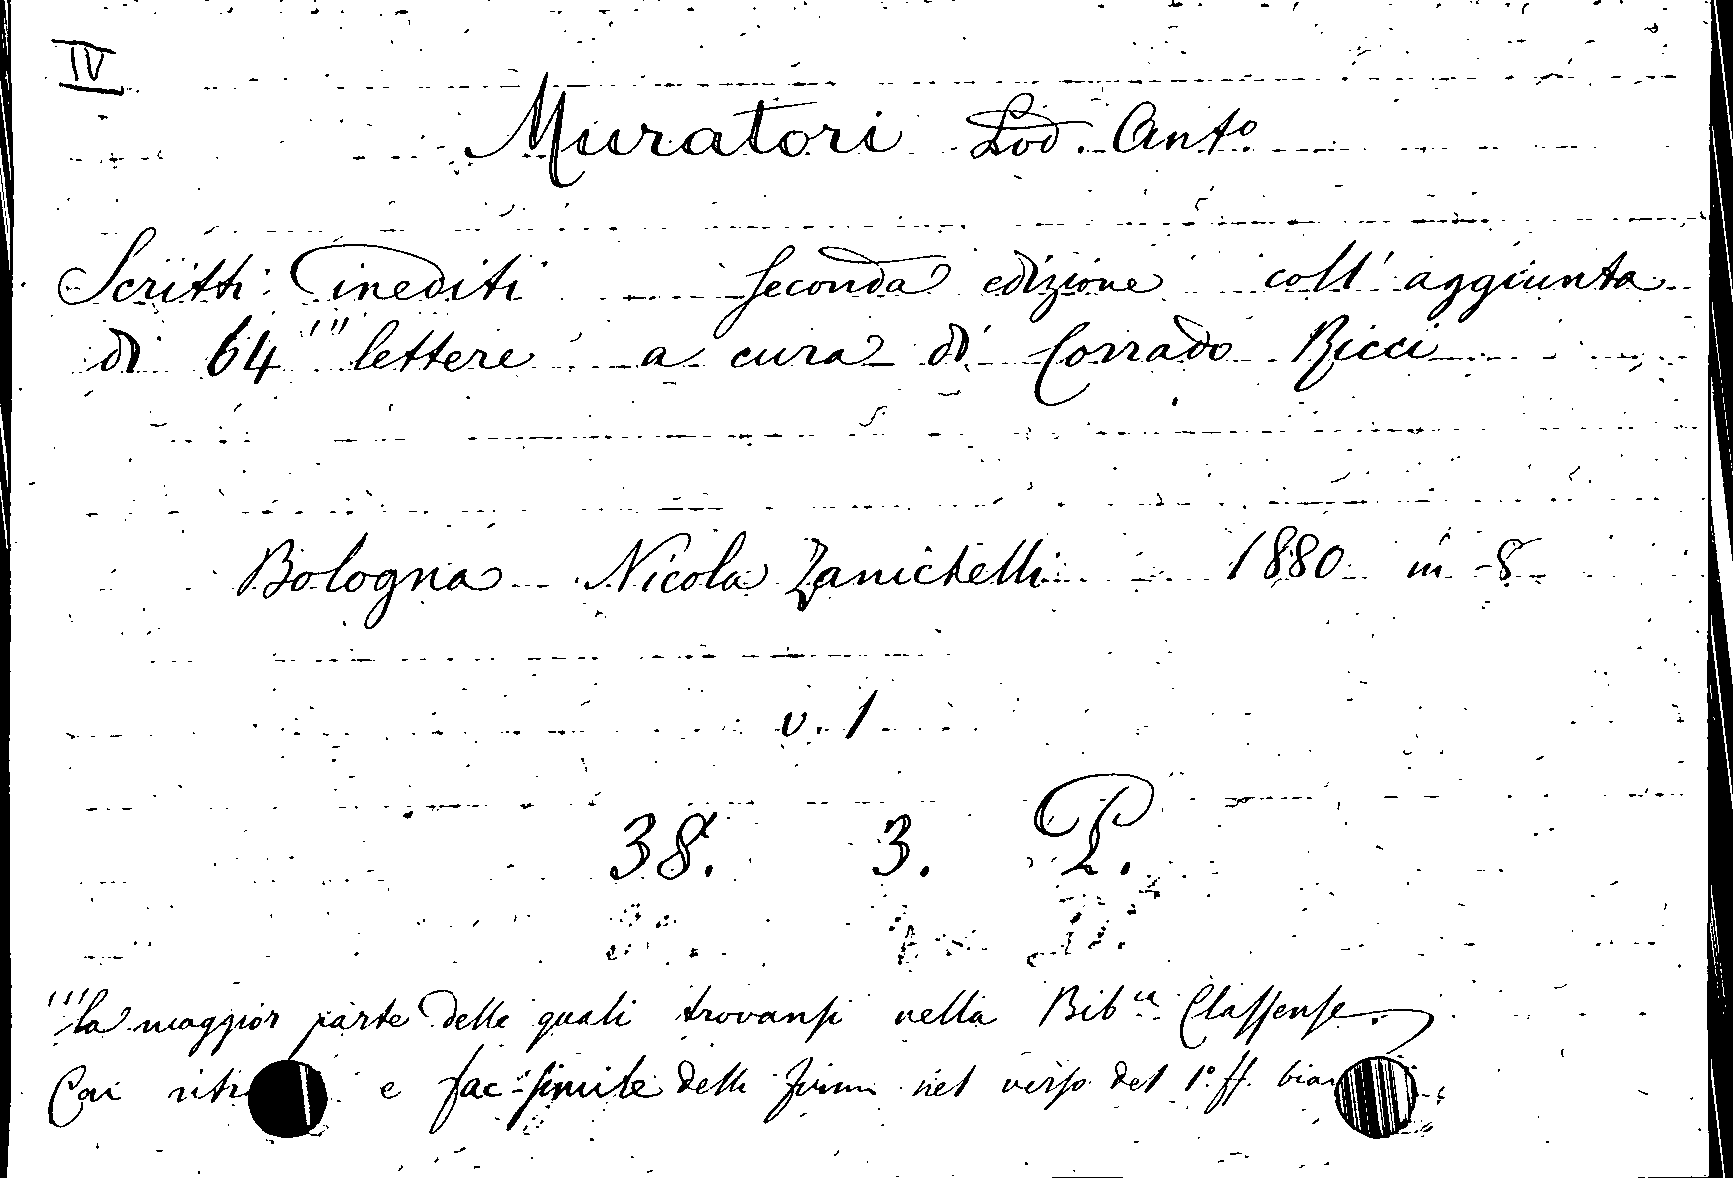 IV
Muratori Lod. Ant.º
Scritti inediti seconda edizione coll'aggiunta
di 64 ''' lettere a cura di Corrado Ricci
Bologna Nicola Zanichelli 1880 in 8
v. 1
38. 3. P.
''' la maggior parte delle quali trovansi nella Bib.ca Classense.
Con e fac-simile della firma nel verso del 1.º ff.